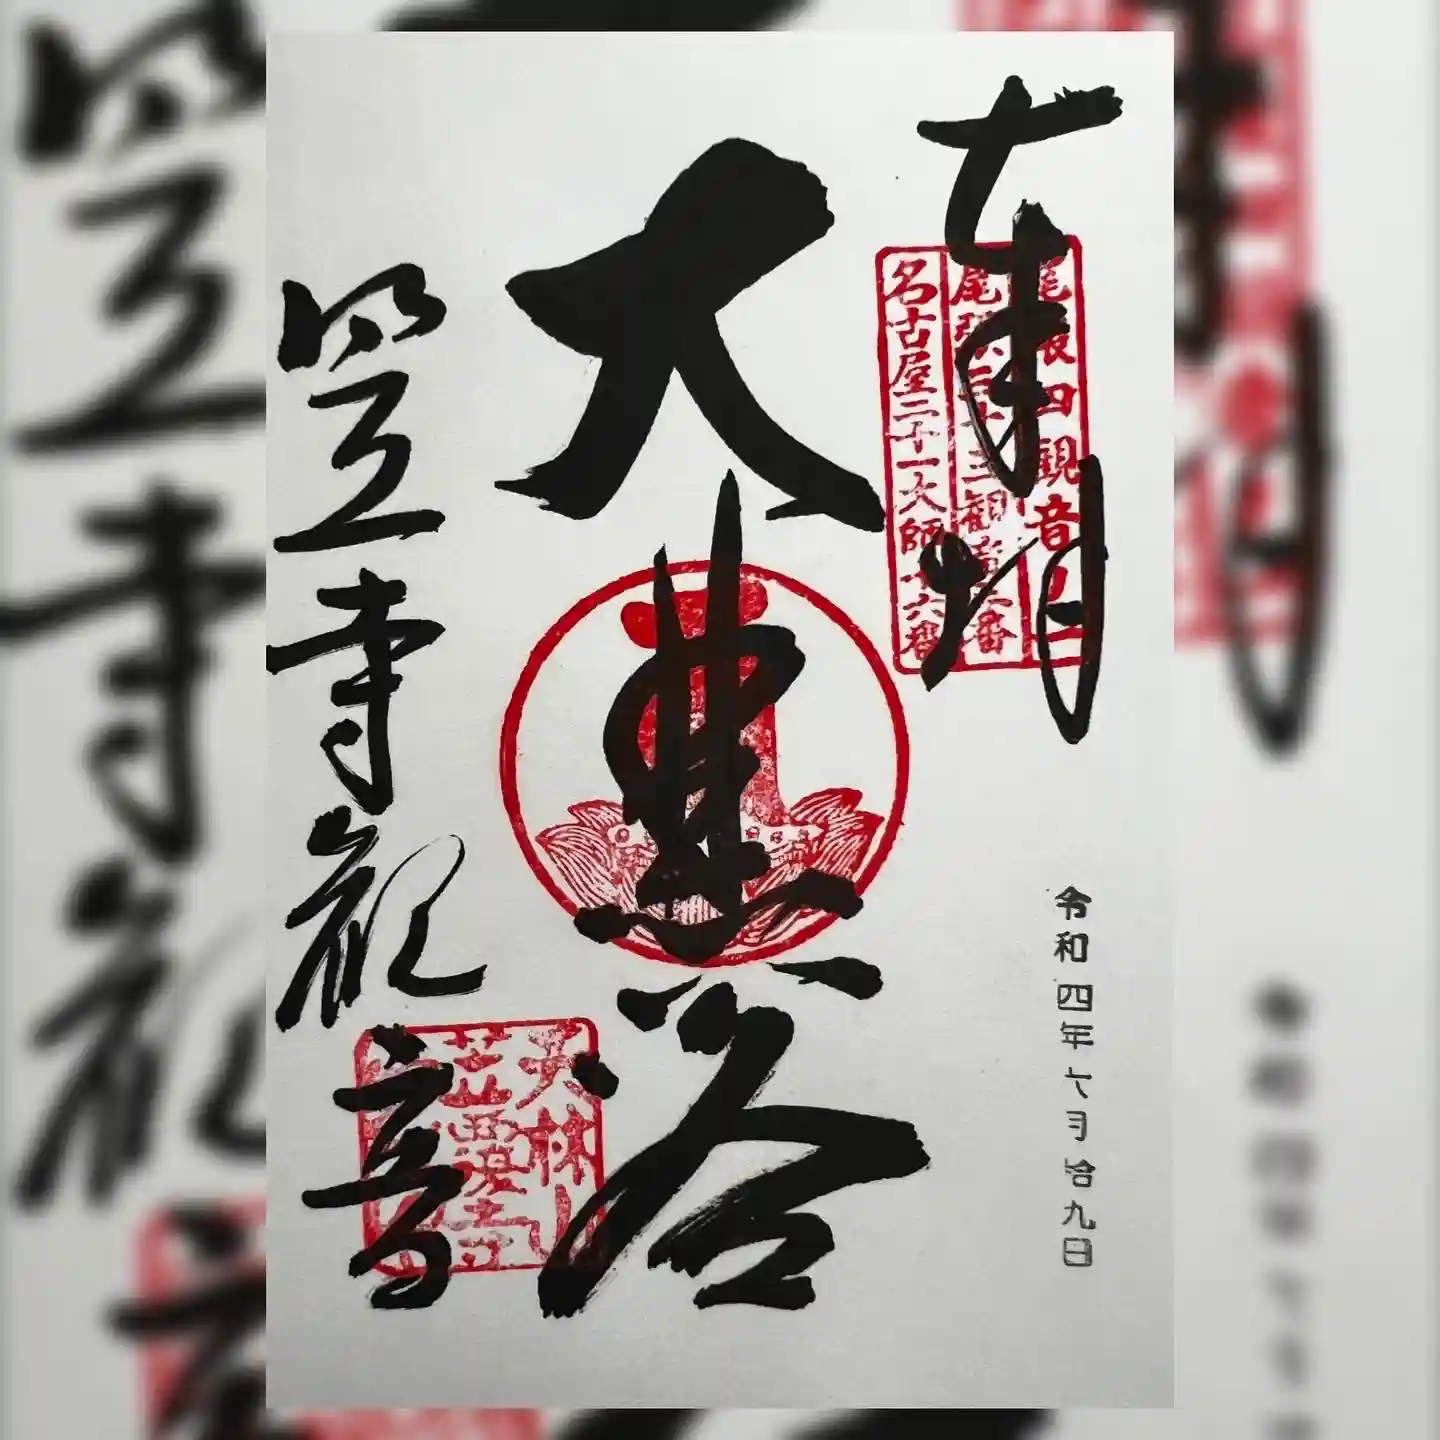 奉拝
尾張四観音ノ一
尾張三十三観音 番
名古屋二十一大師十六番
令和四年六月拾九日
大悲閣
笠寺観音
天林山